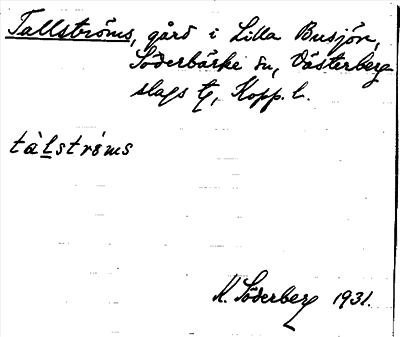 Tallströms, gård i Lilla Busjön,
Söderbärke sn, Västerberg
slags tg, Kopp. l.
tàl̠stróms
K. Söderberg 1931.